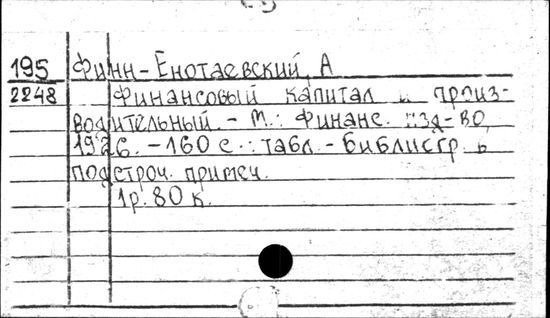 195 Финн-Енотаевский, А
2248 Финансовый капитал и произ-
водительный. - М.: Финанс. изд-во,
1926. - 160 с.: табл. - Библиогр. в
подстроч. примеч.
1р. 80 к.